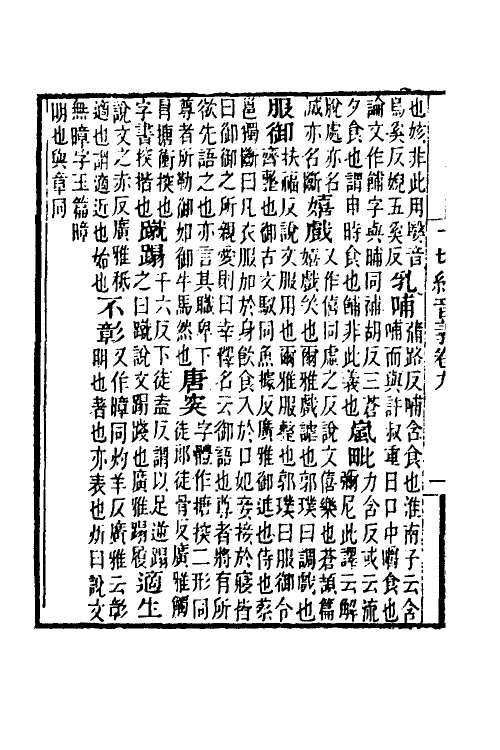 一切經音義卷九
也姟非此用嬰音
烏奚反婗五奚反乳哺蒲路反哺含食也淮南子云含
哺而與許叔重曰口中嚼食也
論文作餔字與晡同補胡反三蒼
夕食也謂申時食也餔非此義也嵐毗力含反或云流
毗尼此譯云解
脫處亦名
滅亦名斷嬉戲又作僖同虛之反說文僖樂也蒼頡篇
嬉戲笑也爾雅戲謔也郭璞曰調戲也
服御扶福反說文服用也爾雅服整也郭璞曰服御令
齊整也御古文馭同魚據反廣雅御近也侍也蔡
邕獨斷曰凡衣服加於身飲食入於口妃妾接於寢皆
曰御御之所親愛則曰幸釋名云御語也尊者將有所
欲先語之也亦言其職卑下
尊者所勒御如御牛馬然也唐突字體作搪揬二形同
徒郎徒骨反廣雅觸
冒搪衝揬也
字書揬揩也蹴蹋千六反下徒盍反謂以足逆蹋
之曰蹴說文蹋踐也廣雅蹋履
適生說文之亦反廣雅秪
適也謂適近也始也不彰又作暲同灼羊反廣雅云彰
明也著也亦表也炘曰說文
無暲字玉篇暲
明也與章同